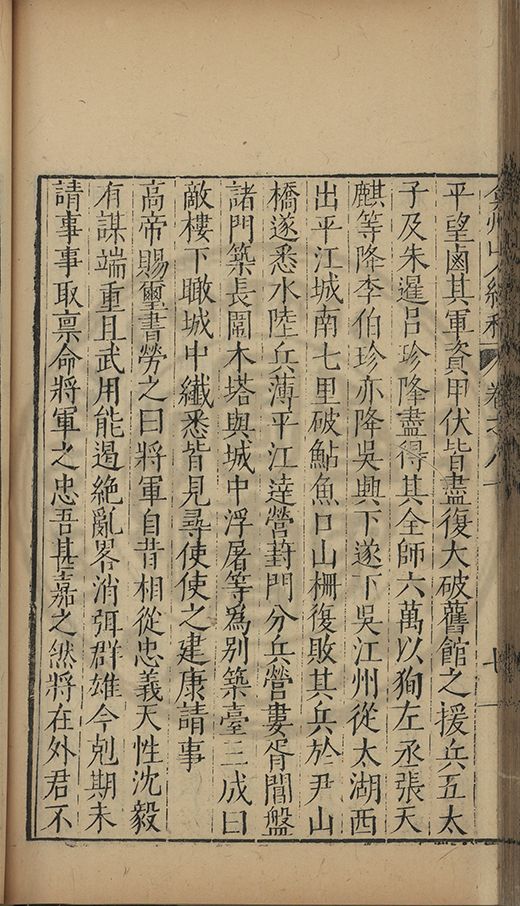 平望鹵其軍資甲伏皆盡復大破舊館之援兵五太
子及朱暹呂珍降盡得其全師六萬以狥左丞張天
麒等降李伯珍亦降吳興下遂下吳江州從太湖西
出平江城南七里破鮎魚口山柵復敗其兵於尹山
橋遂悉水陸兵薄平江逹營葑門分兵營婁胥閶盤
諸門築長圍木塔與城中浮屠等爲别築臺三成曰
敵樓下瞰城中纖悉皆見尋使使之建康請事
高帝賜璽書勞之曰將軍自昔相從忠義天性沈毅
有謀端重且武用能遏絶亂畧消弭群雄今剋期未
請事事取禀命將軍之忠吾甚嘉之然將在外君不